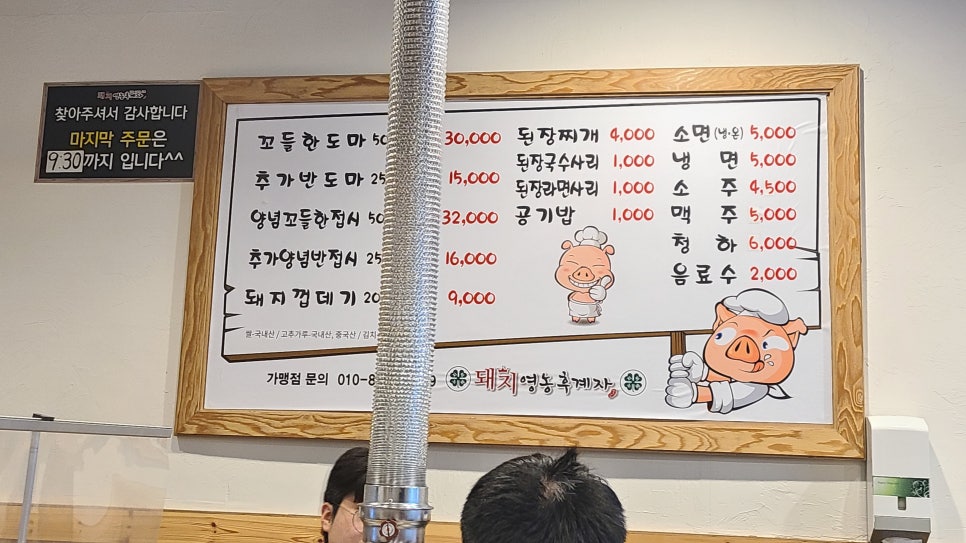 찾아주셔서 감사합니다
마지막 주문은
9:30까지 입니다^^
꼬들한도마 50 30,000
추가반도마 25 15,000
양념꼬들한접시 50 32,000
추가양념반접시 25 16,000
돼지껍데기 20 9,000
된장찌개 4,000
된장국수사리 1,000
된장라면사리 1,000
공기밥 1,000
소면(냉·온) 5,000
냉면 5,000
소주 4,500
맥주 5,000
청하 6,000
음료수 2,000
쌀-국내산 / 고추가루-국내산, 중국산 / 김치
가맹점 문의 010-8 9
돼지영농후계자